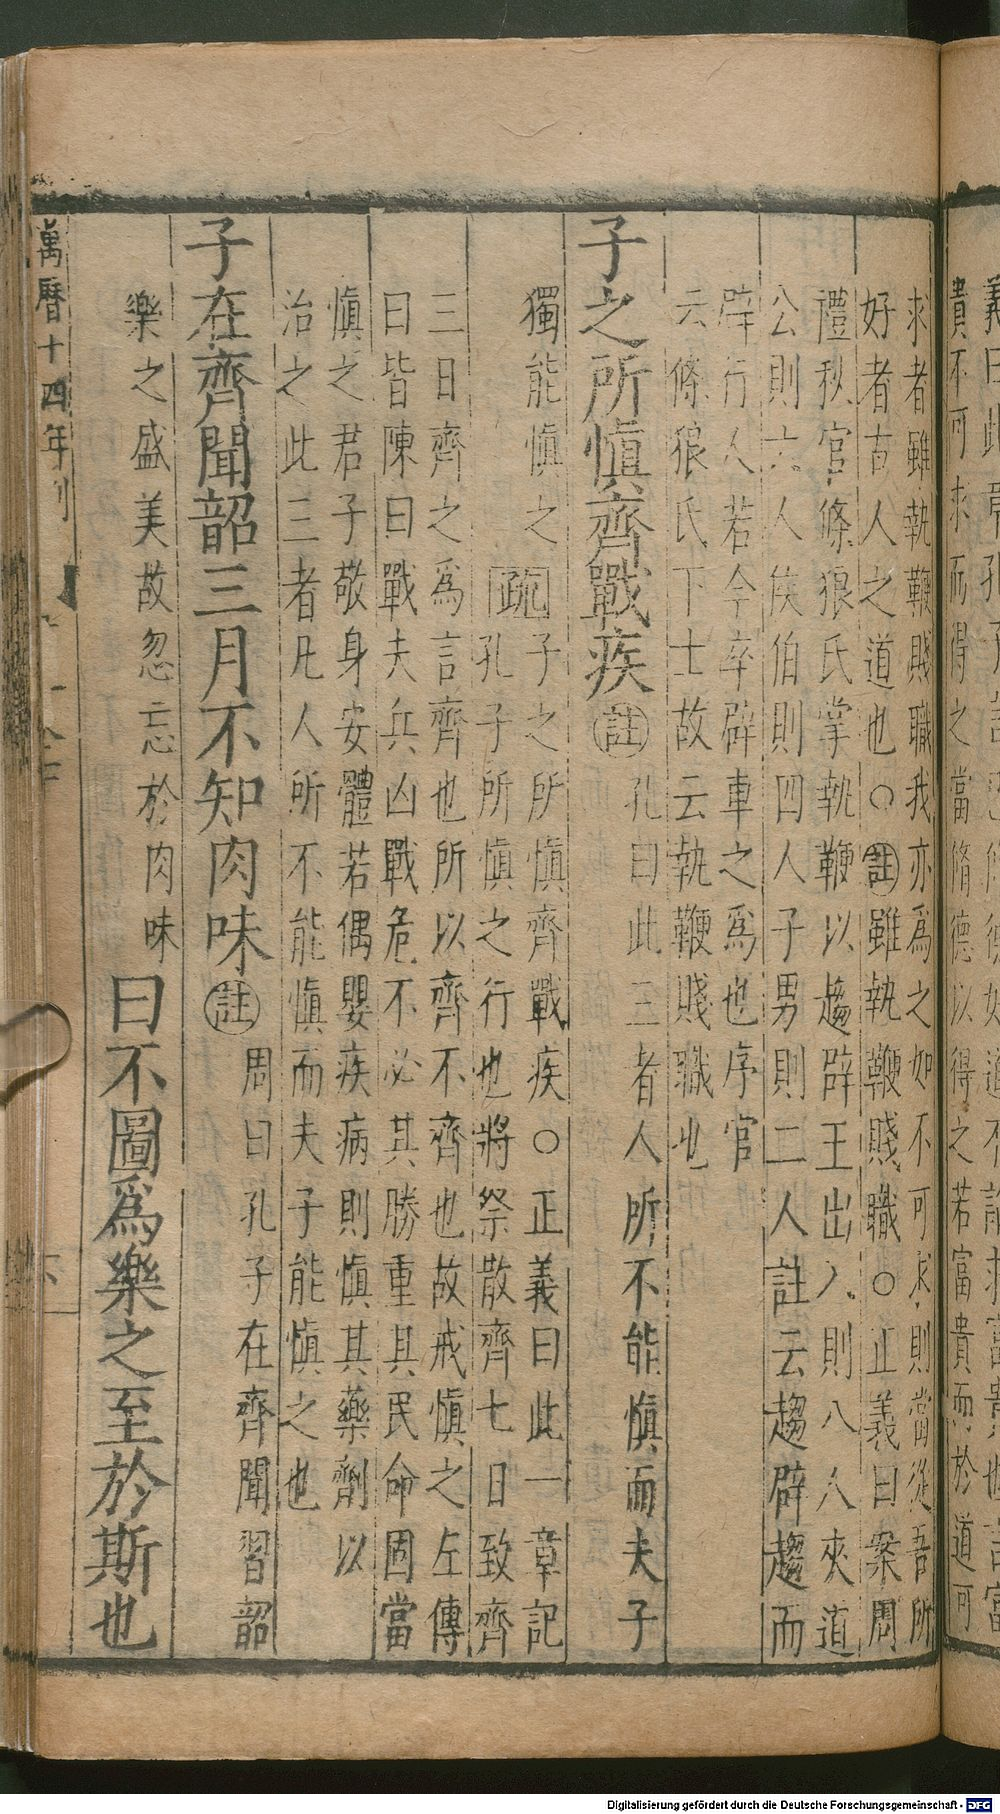 貴不可求而得之當脩德以得之若富貴而於道可
求者雖執鞭賤職我亦爲之如不可求則當從吾所
好者古人之道也○註雖執鞭賤職○正義曰案周
禮秋官條狼氏掌執鞭以趨辟王出入則八人夾道
公則六人侯伯則四人子男則二人註云趨辟趨而
辟行人若今卒辟車之爲也序官
云條狼氏下士故云執鞭賤職也
子之所愼齊戰疾註孔曰此三者人所不能愼而夫子
獨能愼之疏子之所愼齊戰疾○正義曰此一章記
孔子所愼之行也將祭散齊七日致齊
三日齊之爲言齊也所以齊不齊也故戒愼之左傳
曰皆陳曰戰夫兵凶戰危不必其勝重其民命固當
愼之君子敬身安體若偶嬰疾病則愼其藥劑以
治之此三者凡人所不能愼而夫子能愼之也
子在齊聞韶三月不知肉味註周曰孔子在齊聞習韶
樂之盛美故忽忘於肉味曰不圖爲樂之至於斯也
萬曆十四年刊
Digitalisierung gefördert durch die Deutsche Forschungsgemeinschaft - DFG